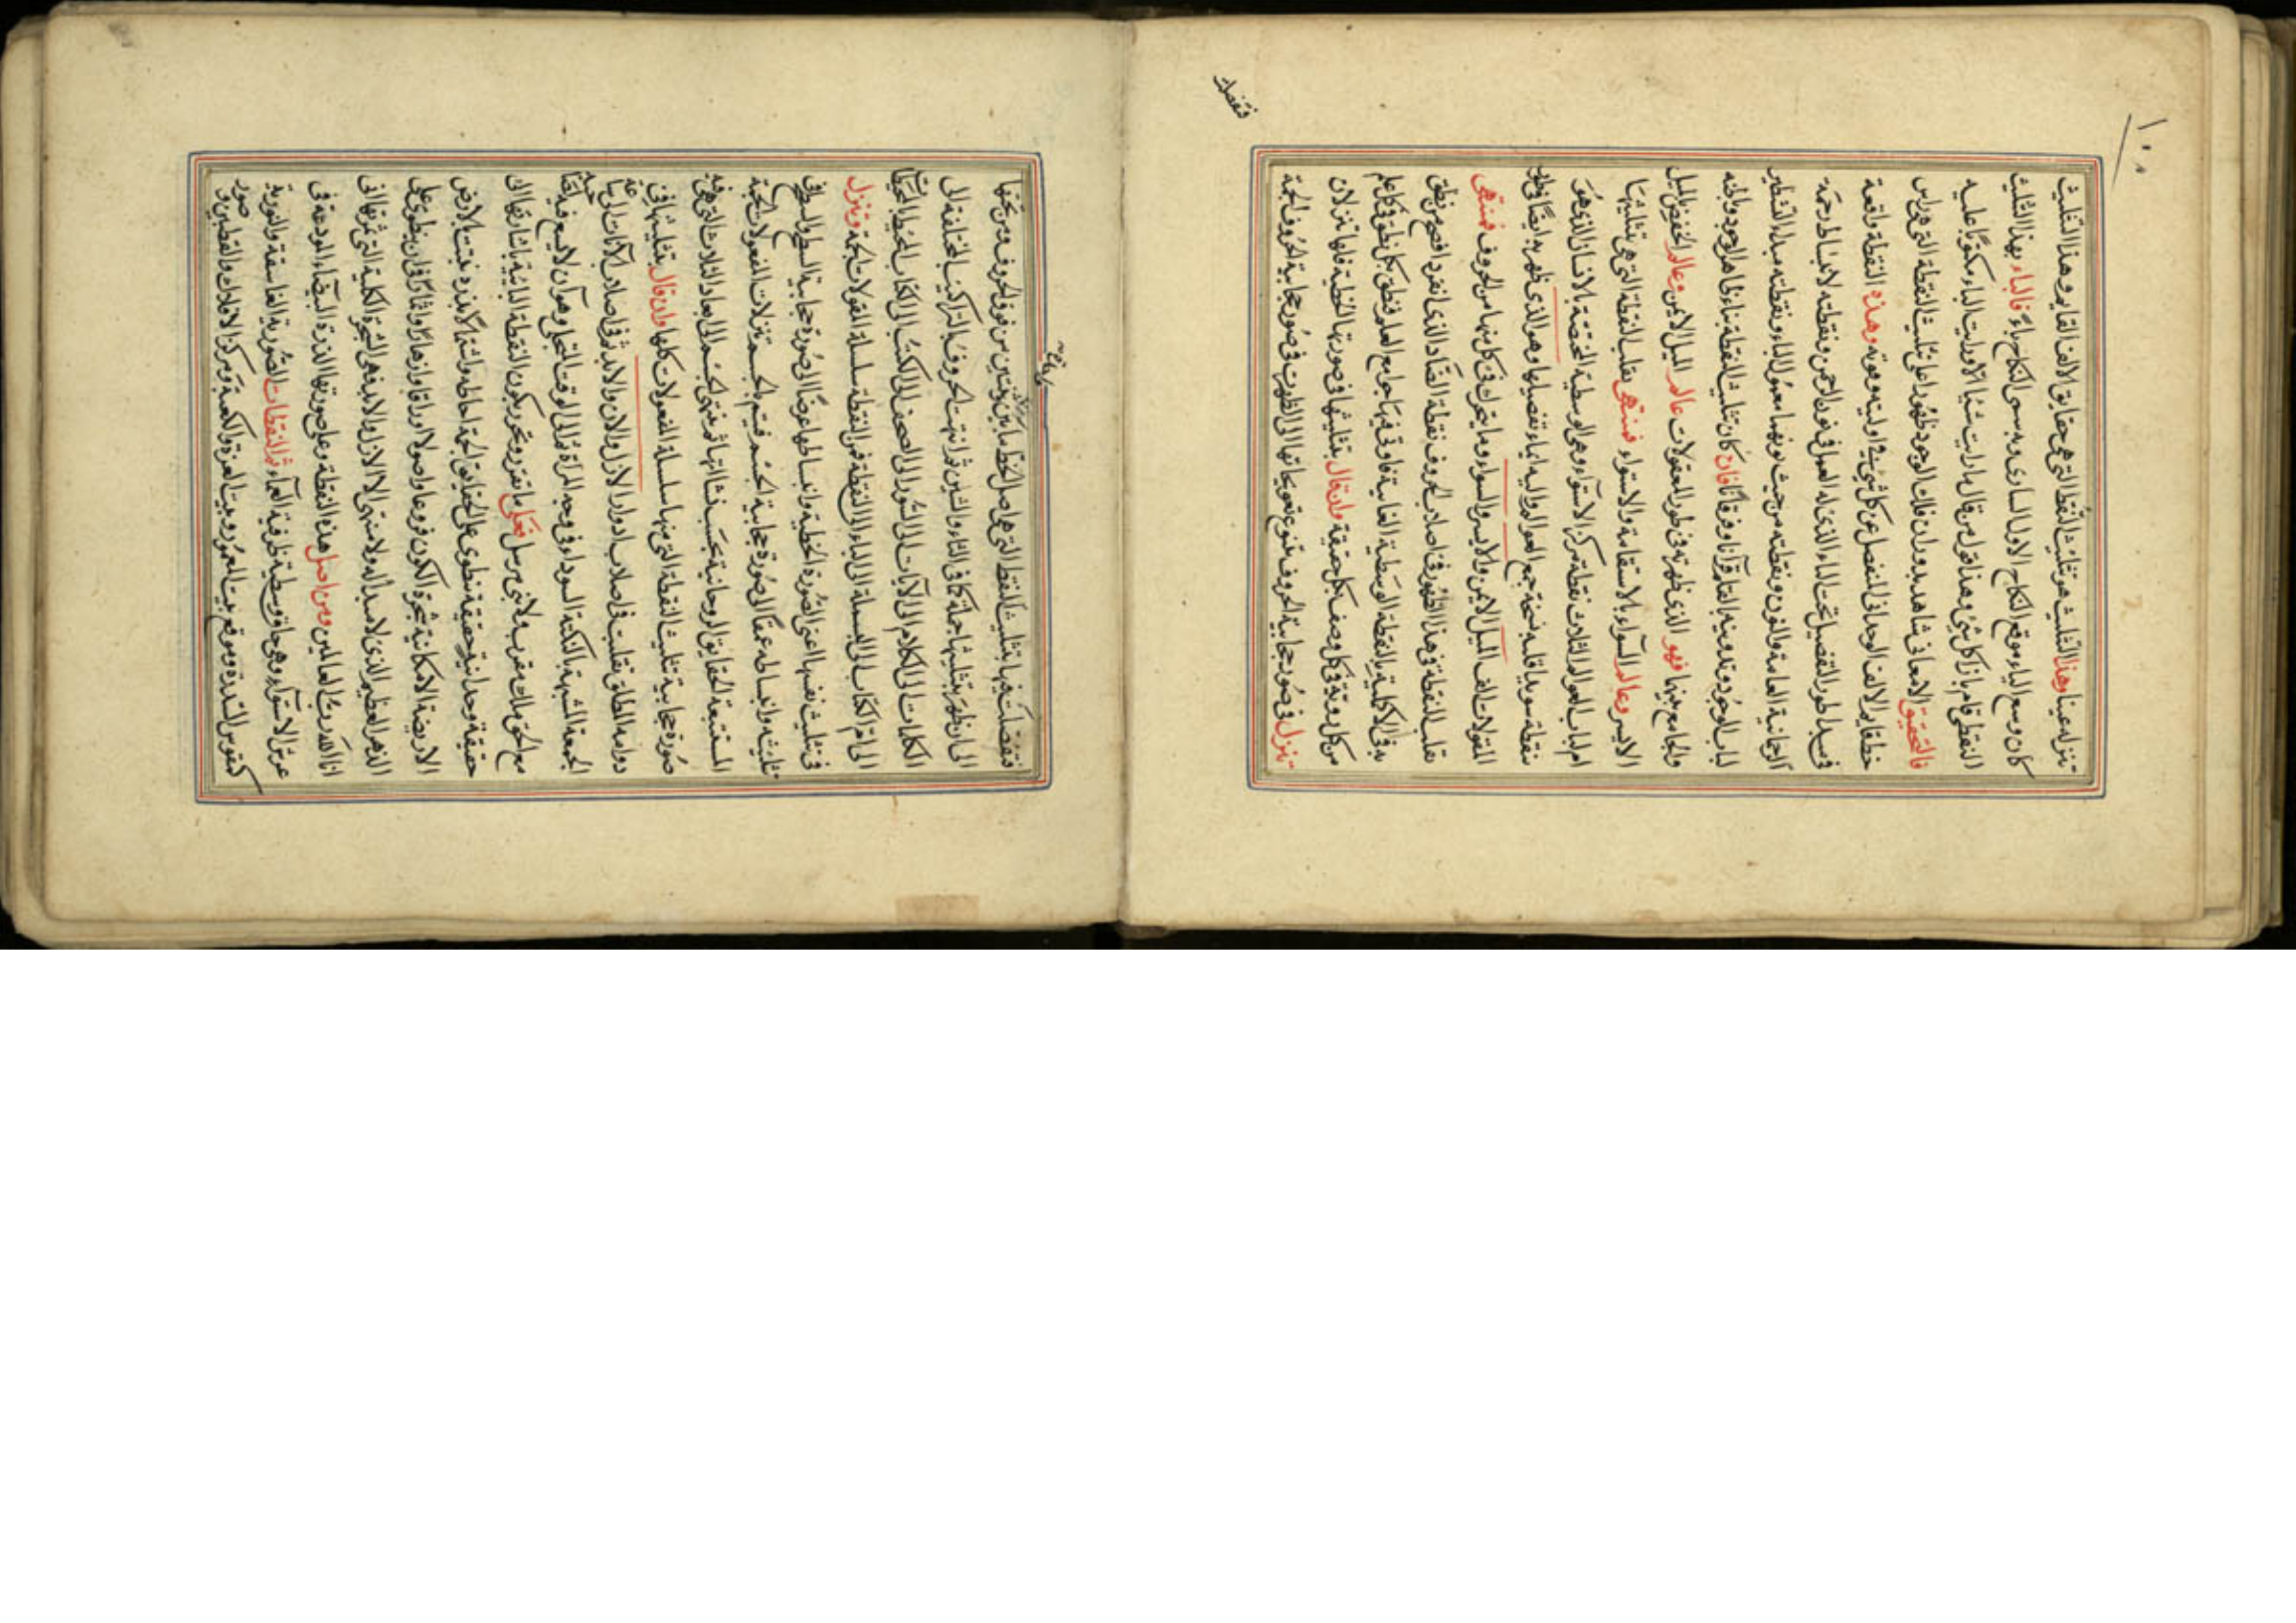 ١٠٠
تنزله عينا وهذا التثليث هو تثليث النقط التي هي حقايق الالف القايم وهذا التثليث
كان وسع الباء موقع النكاح الاول الساري وبه سمي النكاح باءً فالباء بهذا التثليث
النقطي قام بها كل شئ وهذا قول من قال ما رايت شيئا الا ورايت الباء مكتوبًا عليه
فالتحقيق الامعاني شاهد بدوران فلك الوجود ظهورًا على تثليث النقطة التي هي راس
خط قايم الالف الوحداني المنفصل عن كل شئ اوليته وهويته وهذه النقطة واقعة
في مبدا طور التفصيل تحت الباء الذي له العمل في نون الرحمن ونقطته لانبساط رحمة
الرحمانية العامة والنون ونقطته من حيث نونهما معمول الباء ونقطته مبداء التسطير
لباب الوجود وتدوينه بالقلم قرآنا وفرقانا فان كان تثليث النقطة بناء ظاهر الوجود وباطنه
والجامع بينهما فهو الذي ظهر به في طور المعقولات عالم الميل الايمن وعالم الخفض الميل
الايسر وعالم السواء بالاستقامة والاستواء فمنتهى تقلب النقطة التي هي بتثليثها
ام لباب العوالم الثلاث نقطة مركز الاستواء وهي الوسطية المختصة بالانسان الذي هو
بنقطة سويداء قلبه نسخة جميع العوالم واليه ايماء تفصيلها وهو الذي ظهر به ايضا في طور
المقولات الف الميل الايمن والايسر والسواء وما يتحرك في كل منها من الحروف فمنتهى
تقلب النقطة في هذا الظهور في اصلاب الحروف نقطة الضاد الذي انفرد افصح من نطق
به في الاكملية بالنقطة الوسطية الغائية فاوتي فيها جوامع العلم فنطق بكل نطق في كل علم
من كل ذوق في كل وصف بكل حقيقة وان قال بتثليثها في صورتها الخطية فلها تنزلان
تنزل في صور حجابية الحروف بتنوع تعويجاتها الى ان ظهرت في صور حجابية الحروف الجمة
فتفصلت
فتفصلت فيها بتثليث النقط التي هي اصل الخط ما بين من فوق الحروف ومن تحتها
الى ان ظهر بتثليثها جملة كما في الثاء والشين ثم انتهت الحروف بالتركيب المختلفة الى
الكلمات الى الكلام الى الآيات الى السور الى الصحف الى الكتب الى الكتاب المحيط المحيطات
الى ام الكتاب الى البسملة الى الباء الى النقطة فمن النقطة سلسلة المقولات الجمة وتنزل
في تثليث نفسها اعني الصورة الخطية وانبساطها عرضًا الى صورة حجابية السطح والسطح في
تثليثه وانبساطه عمقًا الى صورة حجابية الجسم فيتم بالجسم تنزلات المفعولات الجمة
المستتبعة الحقايق الروحانية بحسب نشاتها ثم ينتهي الجسم الى ابعاد الثلاث التي هي فيه
صورة حجابية تثليث النقطة التي منها سلسلة المفعولات كلها وان قال بتثليثها في
دوامه المطلق تقلبت في اصلاب ادوار الازل والان والابد ثم في اصلاب الآنات الى ساعة
الجمعة الشبيهة بالنكتة السوداء في وجه المرآة ثم الى الوقت المتجلي وهو آن لا يسع فيه
مع الحق ملك مقرب ولا نبي مرسل فعلى ما تقرر وتحرر يكون النقطة البائية باشارتها الى
حقيقة وحدانية حقيقة تنطوي على الحقايق الجمة احاطة واشتمالا كبذرة نبتت بالارض
الارضية الامكانية شجرة الكون فروعا واصولا اوراقا وازهارا واثمارا في ان ينطوي على
الدهر العظيم الذي لا مبدأ له ولا منتهى الا الازل والابد فهي الشجرة الكلية التي ثمرتها اني
انا الله رب العالمين ومن اصل هذه النقطة وعلى صورتها الدرة البيضاء المودعة في
عرش الاستواء وهي حاق وسطية ظرفية العماء ثم النقطات الصورية الغاسقة والنورية
كنقوس السدرة وموقع بيت المعمور وبيت العزة والكعبة ومركز الافلاك والقطبين و
صور